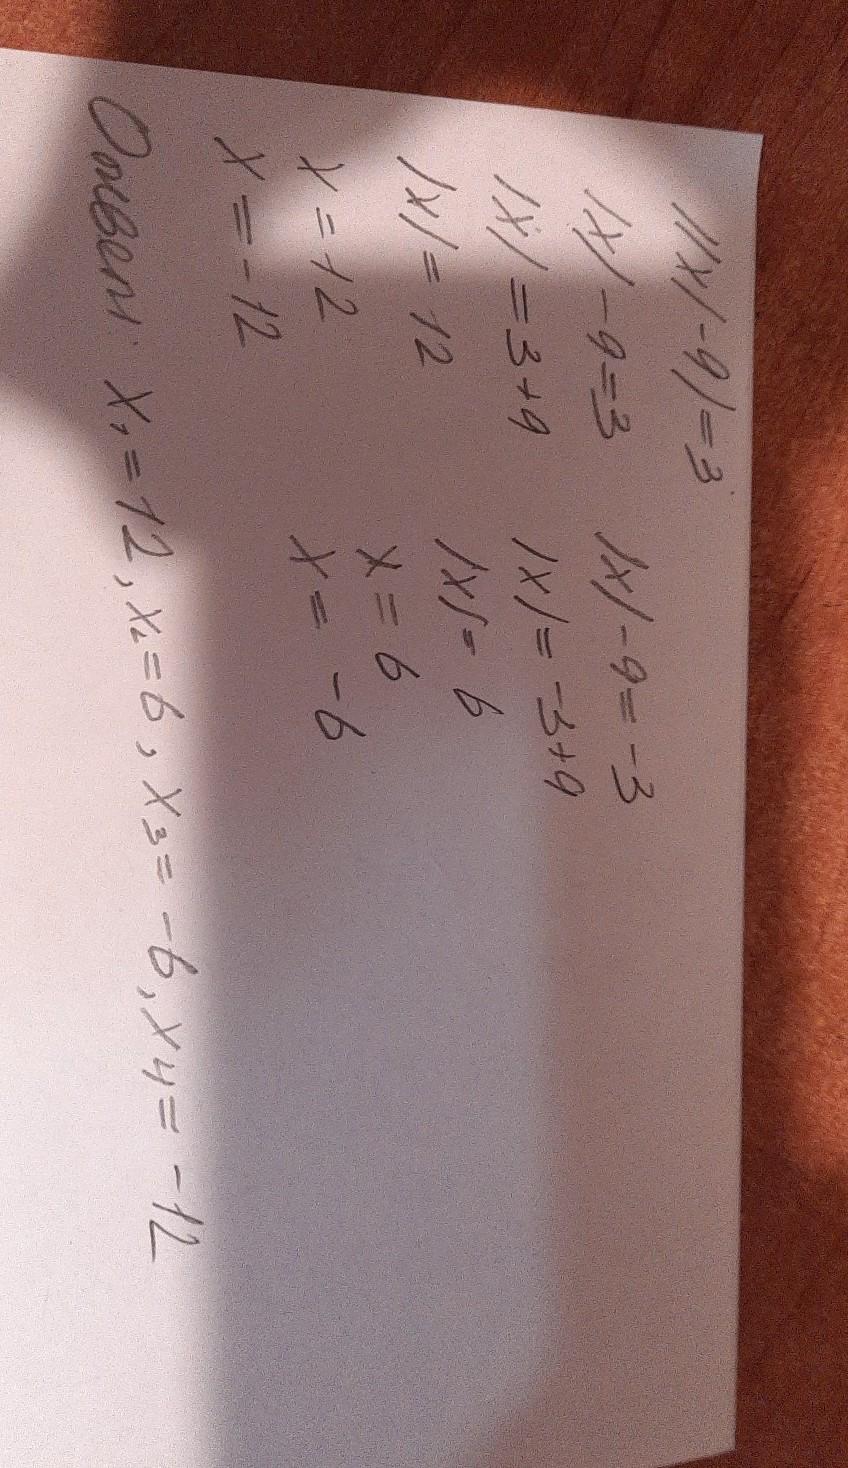 ||x|-9|=3
|x|-9=3 |x|-9=-3
|x|=3+9 |x|=-3+9
|x|=12 |x|=6
x=12 x=6
x=-12 x=-6
Ответ: x₁=12, x₂=6, x₃=-6, x4=-12